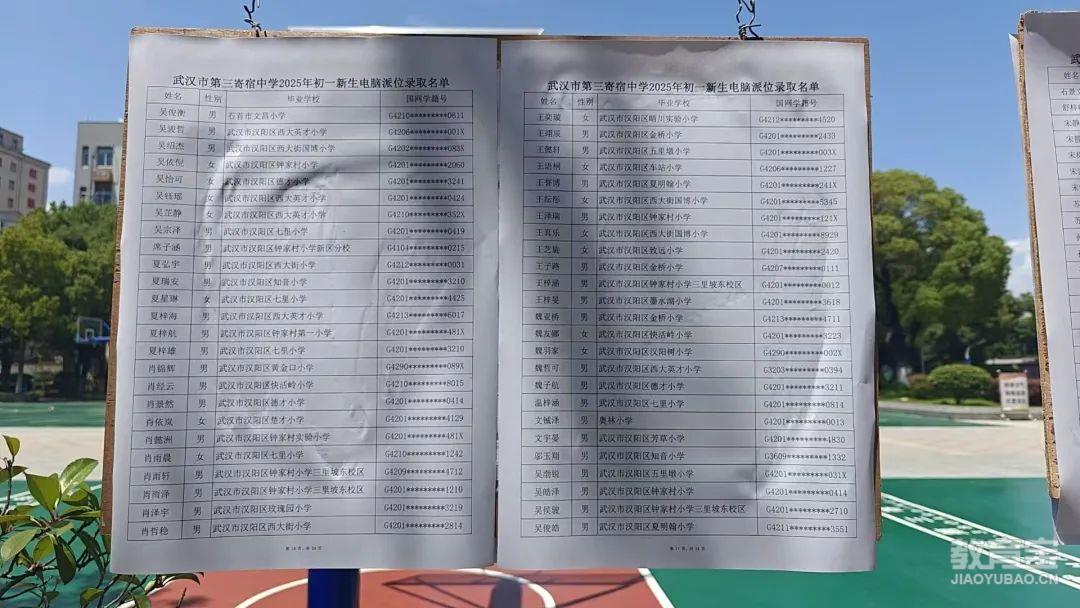 武汉市第三寄宿中学2025年初一新生电脑派位录取名单
姓名 性别 毕业学校 国网学籍号
吴俊衡 男 石首市文昌小学 G4210********0811
吴骏哲 男 武汉市汉阳区西大英才小学 G4206********001X
吴绍杰 男 武汉市汉阳区西大街国博小学 G4202********083X
吴依倪 女 武汉市汉阳区钟家村小学 G4201********2060
吴怡可 女 武汉市汉阳区德才小学 G4201********3241
吴钰瑶 女 武汉市汉阳区西大英才小学 G4201********0424
吴芷静 女 武汉市汉阳区西大英才小学 G4210********352X
吴宗泽 男 武汉市汉阳区七里小学 G4201********0419
席子涵 男 武汉市汉阳区钟家村小学新区分校 G4104********0215
夏弘宇 男 武汉市汉阳区西大街小学 G4212********0031
夏瑞安 男 武汉市汉阳区知音小学 G4201********3210
夏星琳 女 武汉市汉阳区七里小学 G4201********4425
夏梓海 男 武汉市汉阳区西大英才小学 G4213********6017
夏梓航 男 武汉市汉阳区钟家村第一小学 G4201********481X
夏梓雄 男 武汉市汉阳区七里小学 G4201********3210
肖锦辉 男 武汉市汉阳区黄金口小学 G4290********089X
肖经云 男 武汉市汉阳区快活岭小学 G4210********8015
肖景然 男 武汉市汉阳区德才小学 G4201********0414
肖依岚 女 武汉市汉阳区楚才小学 G4201********4129
肖懿洲 男 武汉市汉阳区钟家村实验小学 G4201********481X
肖雨晨 女 武汉市汉阳区七里小学 G4210********1242
肖雨轩 男 武汉市汉阳区钟家村小学三里坡东校区 G4209********4712
肖雨泽 男 武汉市汉阳区钟家村小学三里坡东校区 G4201********1210
肖泽宇 男 武汉市汉阳区玫瑰园小学 G4201********3219
肖哲稳 男 武汉市汉阳区西大街小学 G4201********2814
武汉市第三寄宿中学2025年初一新生电脑派位录取名单
姓名 性别 毕业学校 国网学籍号
王奕璇 女 武汉市汉阳区晴川实验小学 G4212********4520
王翊辰 男 武汉市汉阳区金桥小学 G4201********2433
王懿轩 男 武汉市汉阳区五里墩小学 G4201********003X
王语桐 女 武汉市汉阳区车站小学 G4206********1227
王誉博 男 武汉市汉阳区夏明翰小学 G4201********241X
王耘彤 女 武汉市汉阳区西大街国博小学 G4201********5345
王泽瑞 男 武汉市汉阳区钟家村小学 G4201********121X
王真乐 女 武汉市汉阳区西大街国博小学 G4201********8929
王芝璇 女 武汉市汉阳区致远小学 G4201********2420
王子路 男 武汉市汉阳区金桥小学 G4207********0111
王梓涵 男 武汉市汉阳区钟家村小学三里坡东校区 G4201********0012
王梓旻 男 武汉市汉阳区墨水湖小学 G4201********3618
魏亚桥 男 武汉市汉阳区金桥小学 G4213********4711
魏友娜 女 武汉市汉阳区快活岭小学 G4201********3223
魏羽家 女 武汉市汉阳区汉阳树小学 G4290********002X
魏哲可 男 武汉市汉阳区西大英才小学 G3203********0394
魏子航 男 武汉市汉阳区德才小学 G4201********3211
温梓涵 男 武汉市汉阳区七里小学 G4201********0814
文铖泽 男 奥林小学 G4201********0013
文宇晏 男 武汉市汉阳区芳草小学 G4201********4830
邬玉翔 男 武汉市汉阳区知音小学 G3609********1332
吴渤锐 男 武汉市汉阳区五里墩小学 G4201********031X
吴皓泽 男 武汉市汉阳区钟家村小学 G4201********0414
吴侯骏 男 武汉市汉阳区钟家村小学三里坡东校区 G4201********2710
吴俊皓 男 武汉市汉阳区夏明翰小学 G4211********3551
教育宝
JIAOYUBAO.CN